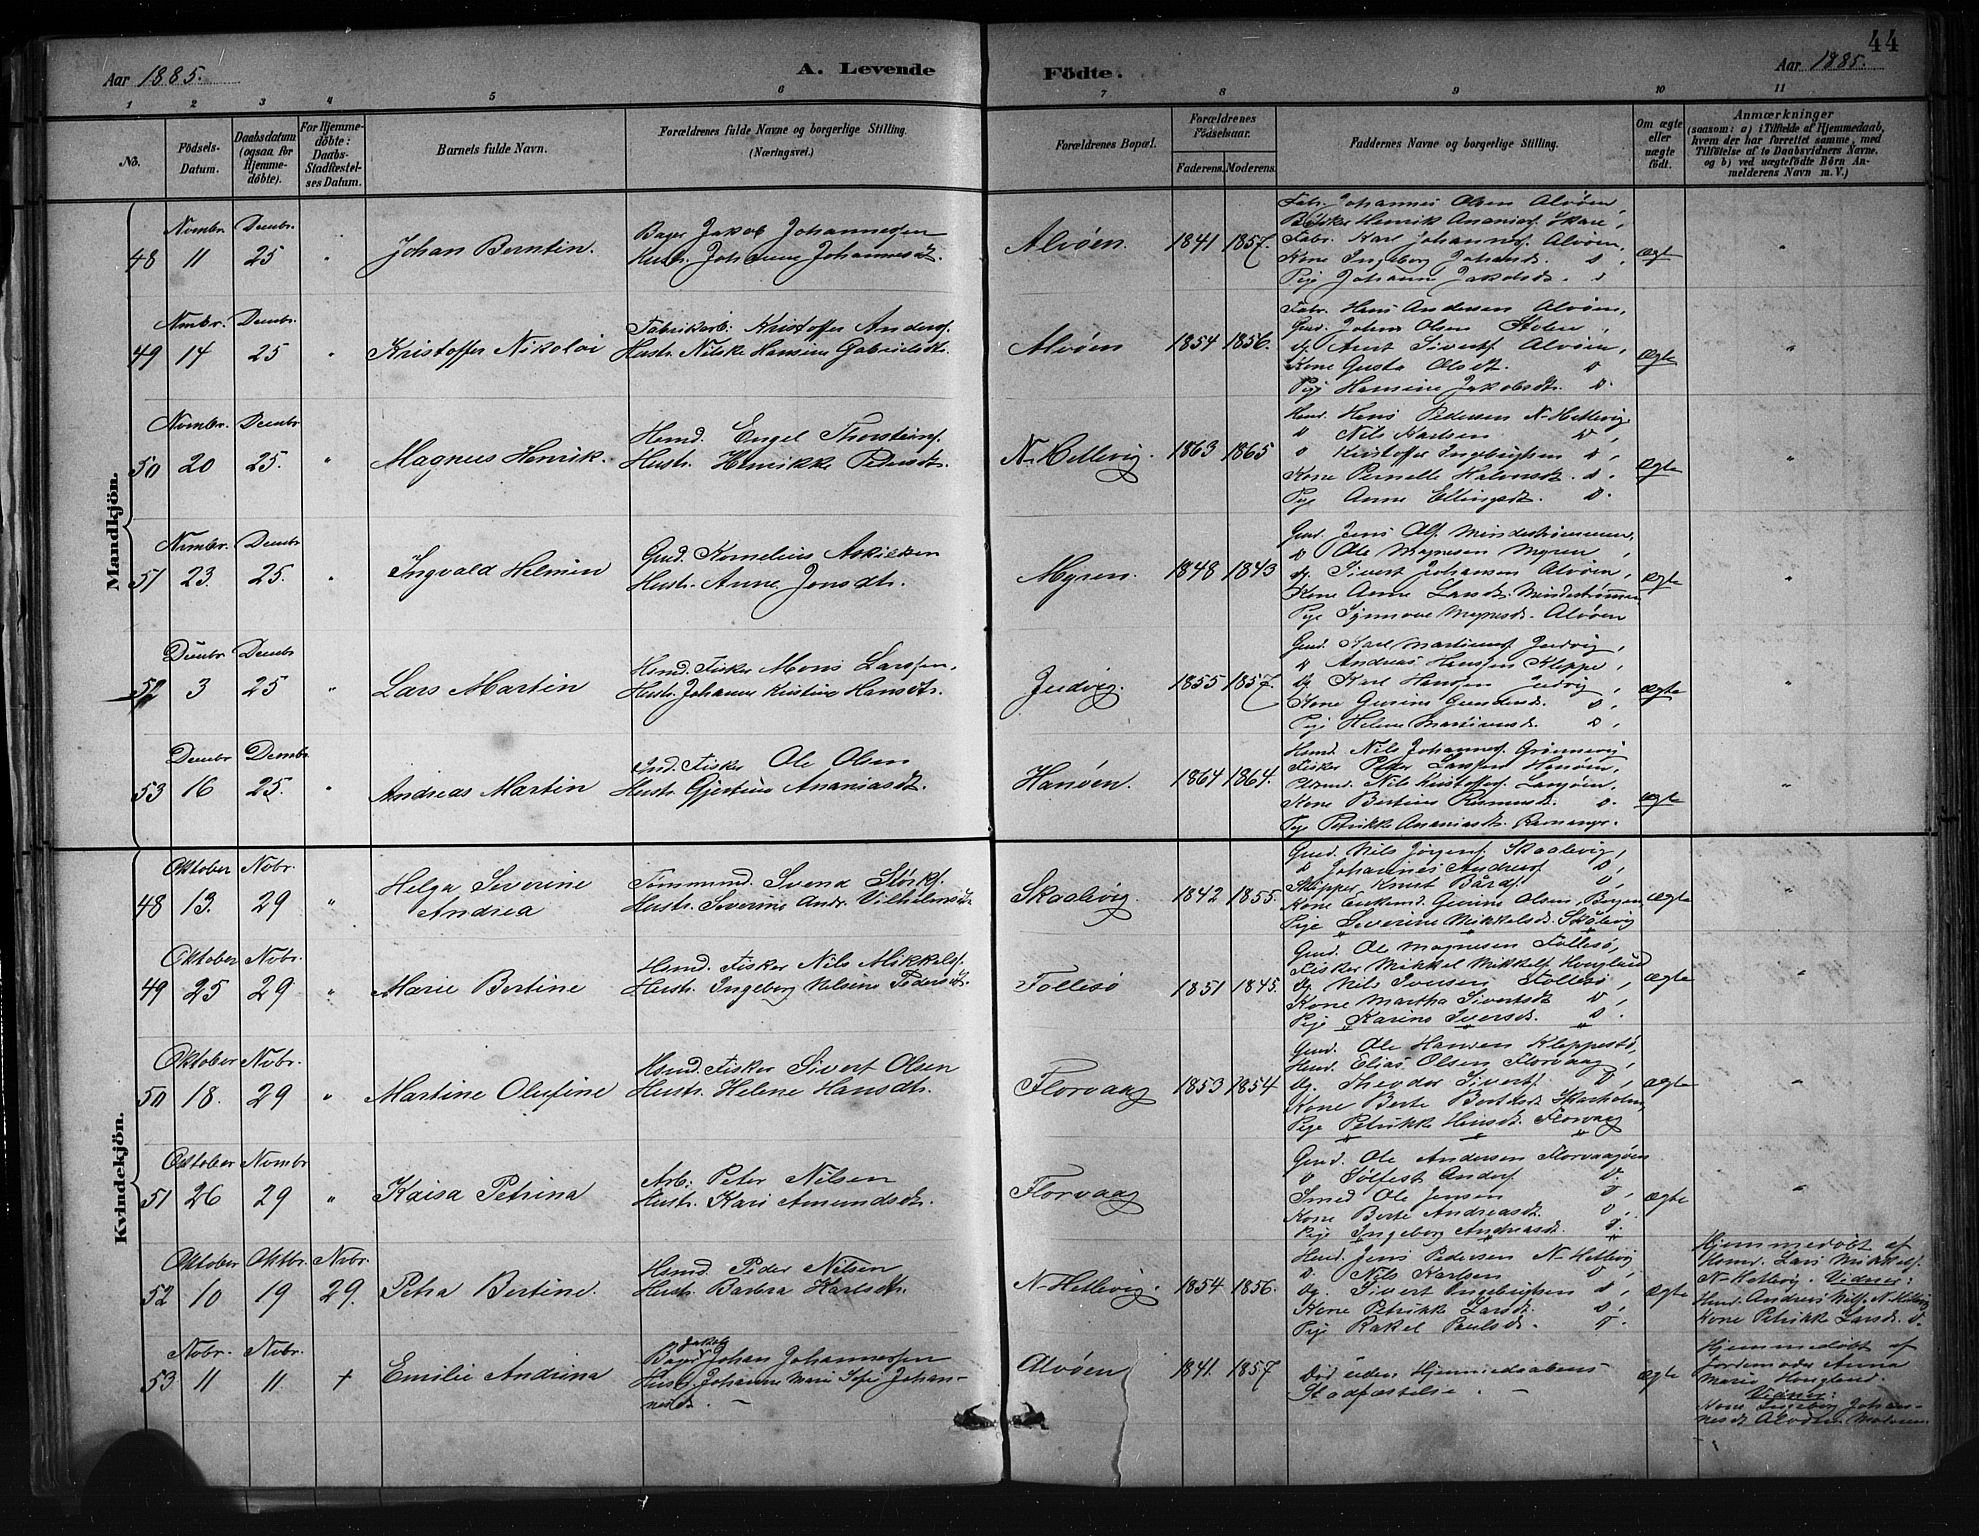 44
Aar 1885.
A. Levende
Födte.
Aar 1885.
1 2 3 4 5 6 7 8 9 10 11
No.
Födsels-Datum.
Daabsdatum (ogsaa for Hjemme-döbte).
For Hjemme-döbte: Daabs-Stadfæstel-ses Datum.
Barnets fulde Navn.
Forældrenes fulde Navne og borgerlige Stilling.
(Næringsvei.)
Forældrenes Bopæl.
Forældrenes Födselsaar.
Faderens. Moderens.
Faddernes Navne og borgerlige Stilling.
Om ægte eller uægte födt.
Anmærkninger
(saasom: a) i Tilfælde af Hjemmedaab, hvem der har forrettet samme, med Tilföielse af to Daabsvidners Navne, og b) ved uægtefödte Börn An-melderens Navn m. V.)
Mandkjön.
48 Novbr. 11 Decmbr. 25 " Johan Berntin.
Bager Jakob Johannessen
Hustr. Johanne Johannesdt.
Alvöen. 1841 1857.
Fabr. Johannes Olsen Alvöen,
Fisker Henrik Ananiasf. Skare,
Fabr. Karl Johannesf. Alvöen,
Kone Ingeborg Johansdt. d.
Pige Johanne Jakobsdt. d
Ægte "
49 Novmbr. 14 Decmbr. 25 " Kristoffer Nikolai
Fabrikarb: Kristoffer Andersf.
Hustr. Nilske Hansine Gabrielsdt.
Alvöen 1854 1856.
Fabr. Hans Andersen Alvöen,
Gmd. Johans Olsen Stolen,
Ug. Arnt Sivertf. Alvöen,
Kone Gusta Olsdt. d
Pige Hansine Jakobsdt. d.
Ægte "
50 Novmbr. 20 Decmbr 25. " Magnus Henrik.
Hsmd. Engel Thorsteinf.
Hustr. Henrikke Pedersdt.
N-Hetlevig. 1863 1865
Hsmd. Hans Pedersen N-Hetlevig
d Nils Karlsen d,
d Kristoffer Ingebrigtsen d,
Kone Pernelle Halvorsdt. d.
Pige Anne Ellingsdt. d.
Ægte "
51 Novmbr. 23. Decmbr 25. " Ingvald Helmin
Gmd. Kornelius Askildsen
Hustr. Anne Jonsdtr.
Myren. 1848 1843
Gmd. Jens Olf. Mindeströmmen,
d Ole Magnesen Myren,
Ug. Sivert Johansen Alvöen,
Kone Anne Larsdt. Mindeströmmen
Pige Synnove Magnesdt. Alvöen
Ægte "
52 Decmbr 3 Decmbr 25 " Lars Martin
Hsmd. Fisker Mons Larssen,
Hustr. Johanne Kristine Hansdtr.
Judvig. 1855 1857.
Gmd. Karl Martinusf. Judvig,
d Andreas Hansen Kleppe,
Ug Karl Hansen Judvig,
Kone Gurine d.
Pige Helene Martinusdt. d,
Ægte "
53 Decmbr 16 Decmbr. 25. " Andreas Martin
Gmd. Fisker Ole Olsen
Hustr. Gjertine Ananiasdt.
Hanöen. 1864 1864.
Hsmd. Nils Johannesf. Grönnevig
Fisker Peder Larssen Hanöen,
Nils Kristoffersf. Langöen,
Kone Bertine Rasmusdt. d.
Pige Petrikke Ananiasdt. Ravnanger.
Ægte "
Kvindekjön.
48 Oktober 13. Nobr. 29 " Helga Severine
Andrea
Tömmermd. Svend Störkf.
Hustr. Severine Andr. Vilhelmsdt.
Skaalevig. 1842 1855.
Gmd. Nils Jörgenf. Skaalevig,
d Johannes Andreasf. d,
Skipper Knut Bårdf. d,
Kone Enkemd. Gurine Olsen, Bergen
Pige Severine Mikkelsdt. Skålevig
Ægte "
49 Oktober 25 Nobr. 29 " Marie Bertine
Hsmd. Fisker Nils Mikkelsf.
Hustr. Ingeborg Nilsine Pedersdt.
Follesö 1851 1845.
Gmd. Ole Magnesen Follesö,
Fisker Mikkel Mikkelsf. Haugland
Ug Nils Iversen Follesö,
Kone Martha Sivertsdt d,
Pige Karine Iversdt. d.
Ægte "
50 Oktober 18. Nobr. 29 " Martine Olufine
Hsmd. Fisker Sivert Olsen
Hustr. Helene Hansdtr.
Florvaag 1853 1854
Gmd. Ole Hansen Kleppestö,
Hsmd. Elias Olsen Florvaag,
Ug. Theodor Sivertf. d,
Kone Berte Bertelsdt. Skarholm,
Pige Petrikke Hansdt. Florvaag
Ægte "
51 Oktober 26 Novmbr 29 " Kaisa Petrina
Arb: Peter Nilsen
Hustr. Kari Amundsdt.
Florvaag
Gmd. Ole Andersen Florvaagöen
d Sölfest Andersf d.
Smed Ole Jensen d,
Kone Berte Andreasdt d,
Pige Ingeborg Andreasdt. d.
Ægte "
52 Oktober 10 Oktbr. 19 Nobr. 29. Petra Bertine.
Hsmd. Peder Nilsen
Hustr. Barbra Karlsdtr.
N-Hetlevig. 1854 1856.
Hsmd. Jens Pedersen N-Hetlevig
d. Nils Karlsen d,
Ug. Sivert Ingebrigtsen d,
Kone Petrikke Larsdt. d.
Pige Rakel Paulsdt. d.
Ægte
Hjemmedöbt af
Hsmd. Lars Mikkelsf.
N-Hetlevig. Vidner:
Hsmd. Andreas Nilsf. N-Hetlevig
Kone Petrikke Larsdt. d.
53 Nobr. 11 Nobr. 11. + Emilie Andrina
Jakob
Bager Johan Johannessen
Hustr. Johanne Marie Sofie Johan-
nesdt. —
Alvöen 1841. 1857
Död uden Hjemmedaabens
Stadfæstelse. —
Ægte
Hjemmedöbt af
Jordemoder Anna
Marie Haugland.
Vidner:
Kone Ingeborg Johan-
nesdt Alvöen